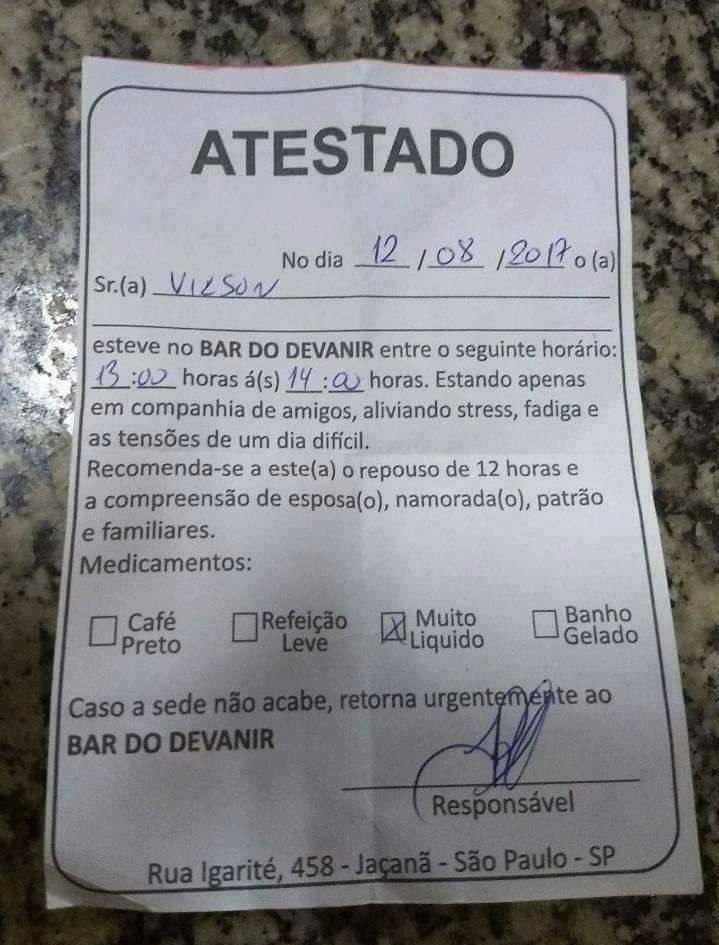 ATESTADO
No dia 12 / 08 / 2017 o (a)
Sr.(a) VILSON
esteve no BAR DO DEVANIR entre o seguinte horário:
13:00 horas á(s) 14:00 horas. Estando apenas
em companhia de amigos, aliviando stress, fadiga e
as tensões de um dia difícil.
Recomenda-se a este(a) o repouso de 12 horas e
a compreensão de esposa(o), namorada(o), patrão
e familiares.
Medicamentos:
Café Preto
Refeição Leve
X Muito Liquido
Banho Gelado
Caso a sede não acabe, retorna urgentemente ao
BAR DO DEVANIR
Responsável
Rua Igarité, 458 - Jaçanã - São Paulo - SP